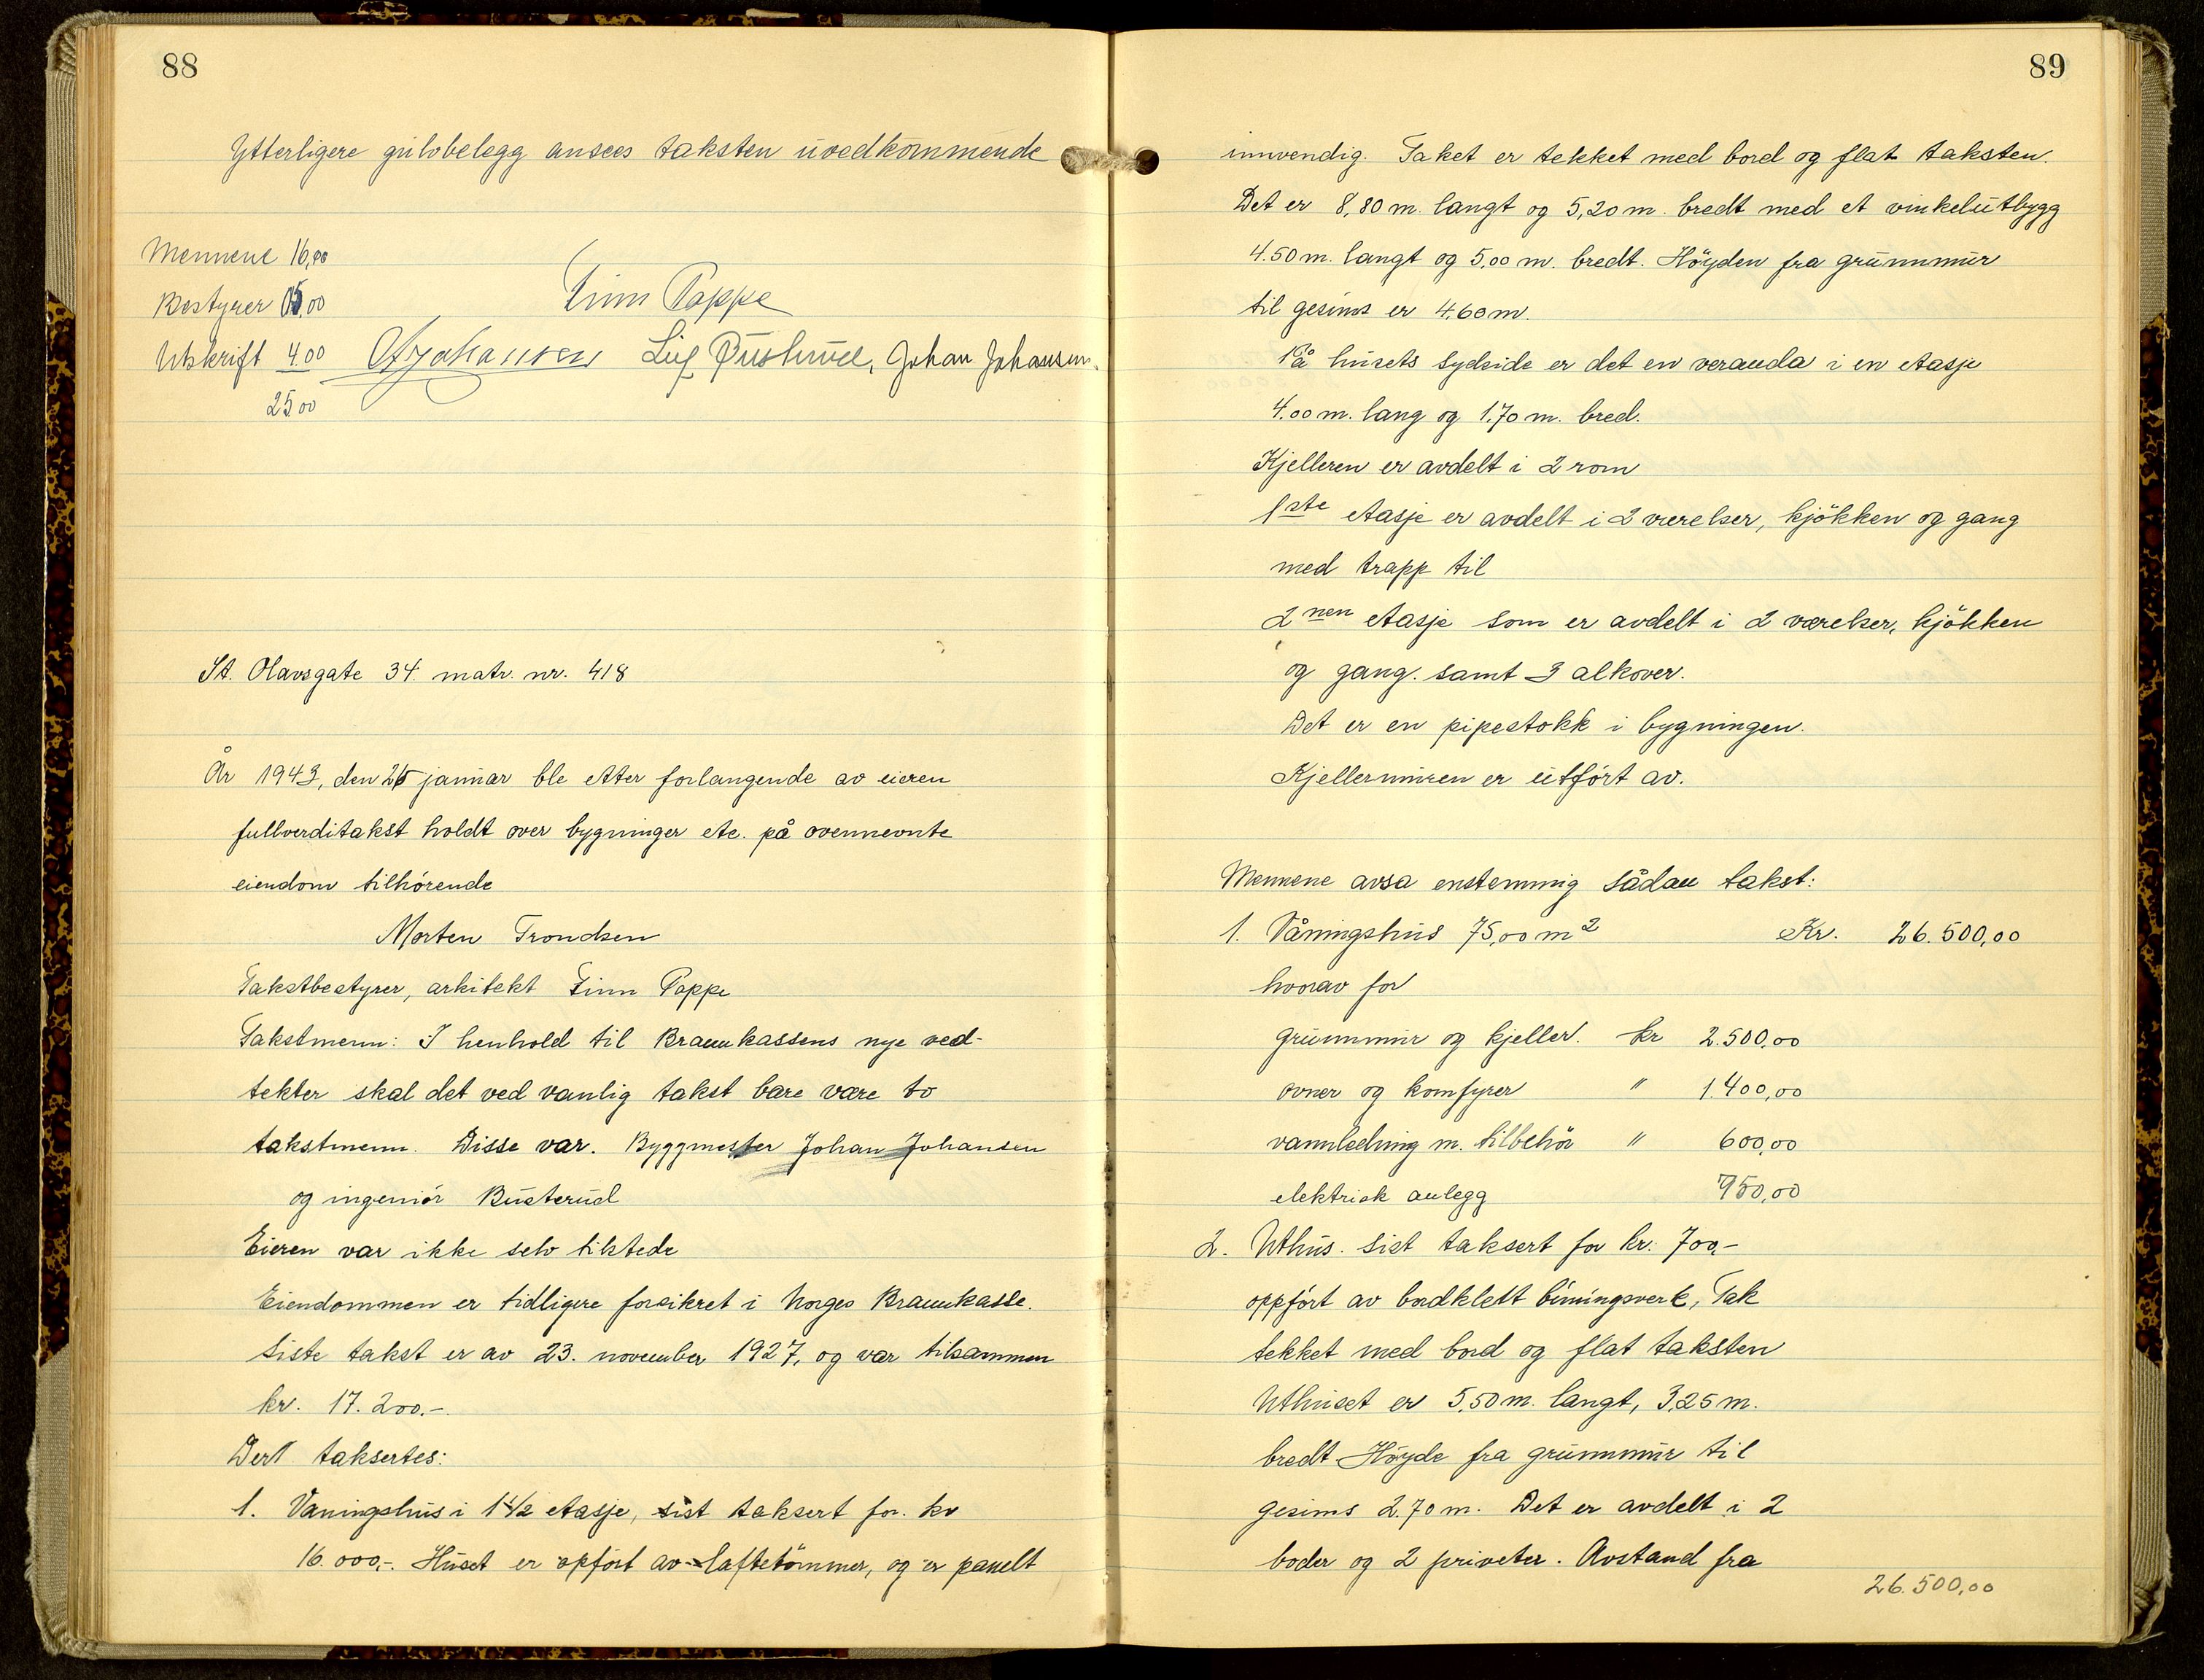 88
Ytterligere gulvbelegg ansees taksten uvedkommende
Mennene 16,00
Bestyrer 05.00
Utskrift 4.00
25.00
Finn Poppe
Johansen Leif Busterud, Johan Johansen.
St. Olavsgate 34 matr. nr. 418
År 1943, den 26 januar ble etter forlangende av eieren
fullverditakst holdt over bygninger etc. på ovennevnte
eiendom tilhørende
Morten Trondsen
Takstbestyrer, arkitekt Finn Poppe
Takstmenn: I henhold til Brannkassens nye ved-
tekter skal det ved vanlig takst bare være to
takstmenn. Disse var. Byggmester Johan Johansen
og ingeniør Busterud
Eieren var ikke selv tilstede
Eiendommen er tidligere forsikret i Norges Brannkasse.
Siste takst er av 23. november 1927, og var tilsammen
kr. 17.200.-
Der taksertes:
1. Vaningshus i 1 1/2 etasje, sist taksert for. kr
16.000,-. Huset er opført av laftetömmer, og er panelt
89
innvendig. Taket er tekket med bord og flat taksten.
Det er 8,80 m. langt og 5,20 m. bredt med et vinkelutbygg
4.50 m. langt og 5,00 m. bredt. Höyden fra grunnmur
til gesims er 4.60 m.
På husets sydside er det en veranda i en etasje
4.00 m. lang og 1.70 m. bred.
Kjelleren er avdelt i 2 rom
1ste etasje er avdelt i 2 værelser, kjökken og gang
med trapp til
2nen etasje som er avdelt i 2 værelser, kjökken
og gang. samt 3 alkover.
Det er en pipestokk i bygningen.
Kjellermuren er utført av.
Mennene avsa enstemmig sådan takst:
1. Våningshus 75,00 m2 Kr. 26.500,00
hvorav for
grunnmur og kjeller. kr 2.500,00
ovner og komfyrer " 1.400,00
vannledning m. tilbehör " 600,00
elektrisk anlegg 950,00
2. Uthus. sist taksert for kr. 700,-
oppført av bordklett bindingsverk, Tak
tekket med bord og flat taksten
Uthuset er 5,50 m. langt, 3,25 m.
bredt Høyde fra grunnmur til
gesims 2.70 m. Det er avdelt i 2
boder og 2 priveter. Avstand fra
26.500,00